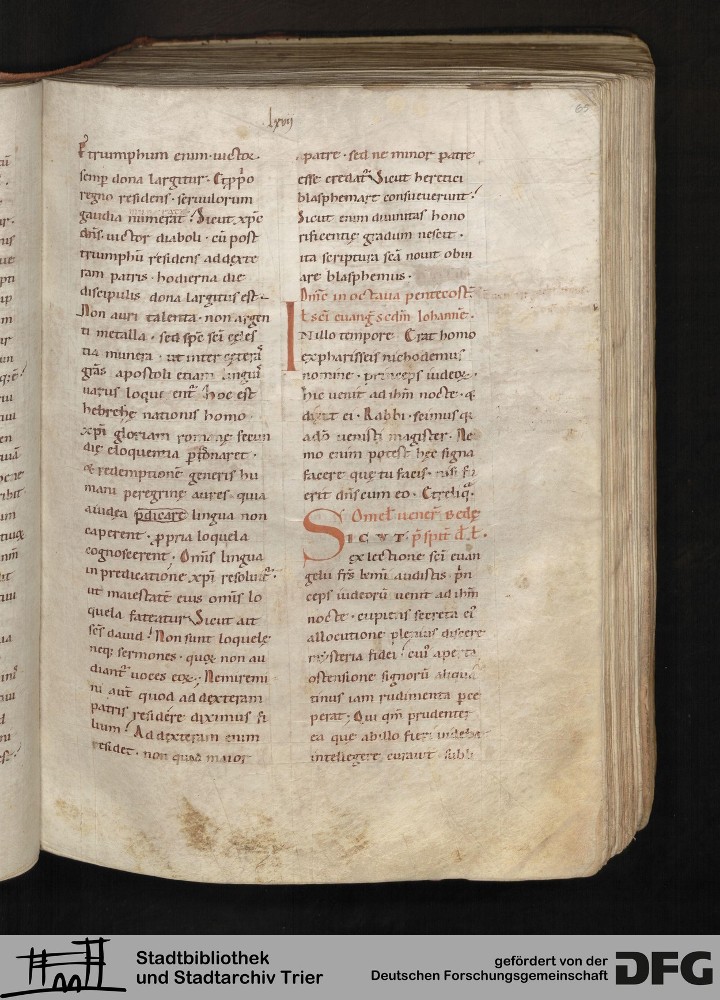 .lxvii.
65
triumphum enim· uictor·
semp dona largitur· Et xpo
regno residens· seruulorum
gaudia numerat· Sicut xpc
dns· uictor diaboli· cu post
triumphu residens ad dexte
ram patris· hodierna die
discipulis dona largitus est·
Non auri talenta· non argen
ti metalla· sed spc sci celes
tia munera· ut inter cetera
gras apostoli etiam lingua
uarus loque ent hoc est
hebrehe nationis homo
xpi gloriam romane secun
die eloquentia
redemptione generis hu
mani peregrine aures· quia
iudea pdicare lingua non
caperent· ppria loquela
cognoscerent· Omis lingua
in predicatione xpi resoluit·
ut maiestate eius omis lo
quela fateatur Sicut ait
scs dauid· Non sunt loquele
neq; sermones· quor non au
diant uoces eor· Memini
aut quod ad dexteram
patris residere diximus fi
lium· Ad dexteram enim
residet· non quod maior
patre· sed ne minor patre
esse credat Sicut heretici
blasphemare consueuerunt·
Sicut enim diuinitas hono
rificentie gradum nescit·
ita scriptura sca nouit obui
are blasphemus·
Dnic in octaua pentecost
sci euang scdm Iohanne·
In illo tempore· Erat homo
ex phariseis nichodemus
nomine· princeps iudeor·
hic uenit ad ihm nocte· &
dixit ei· Rabbi· scimus q
a do uenisti magister· Ne
mo enim potest hec signa
facere que tu facis· nisi fu
erit dns cum eo· Et reliq·
Omel uener Bede
SICUT·
ex lectione sci euan
gelii frs kmi audistis· prin
ceps iudeoru uenit ad ihm
nocte· cupiens secreta ei
allocutione plenius discere
mysteria fidei· cui aperta
ostensione signoru aliqua
tinus iam rudimenta pce
perat· Qui qm prudenter
ea que ab illo fieri uidebat
intellegere curauit·
Stadtbibliothek
und Stadtarchiv Trier
gefördert von der
Deutschen Forschungsgemeinschaft
DFG